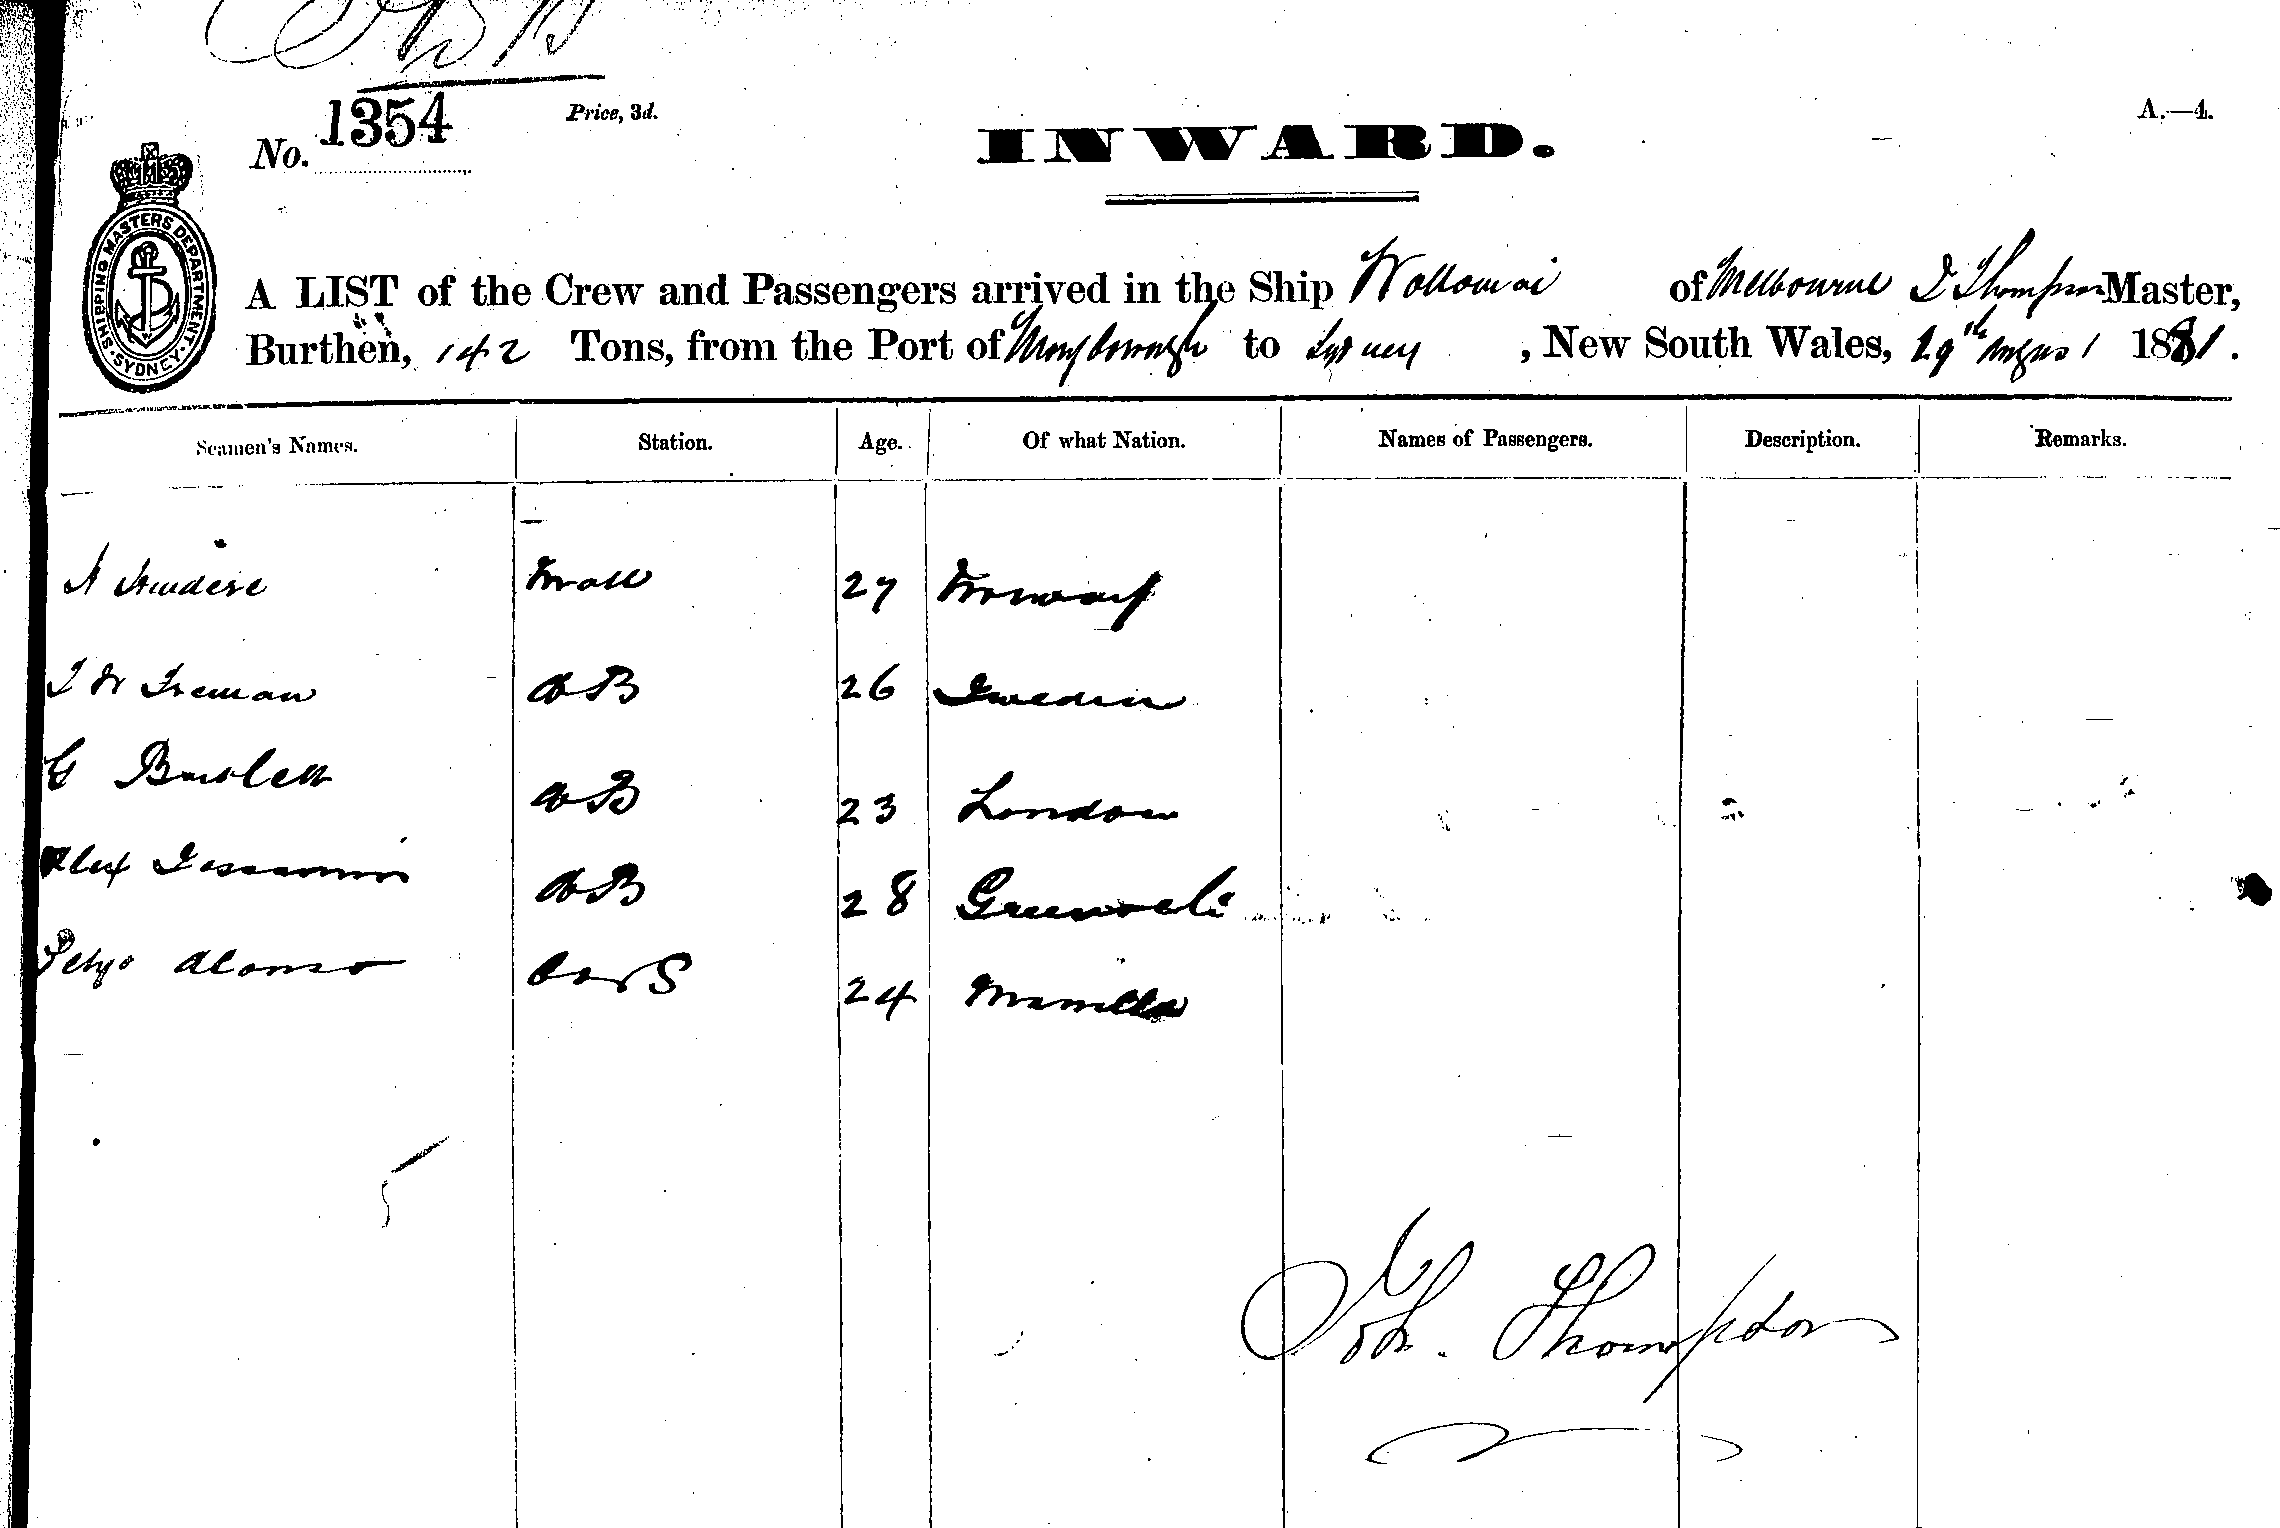 No. 1354 Price, 3d.
A.—4.
INWARD.
SHIPPING MASTERS DEPARTMENT. SYDNEY.
A LIST of the Crew and Passengers arrived in the Ship Wollomai of Melbourne J Thompson Master,
Burthen, 142 Tons, from the Port of Maryborough to Sydney, New South Wales, 29th August 1881.
Seamen's Names. Station. Age. Of what Nation. Names of Passengers. Description. Remarks.
Mate 27 Norway
AB 26 Sweden
G Bartlett AB 23 London
Alex AB 28
Alonso 24 Manilla
Joh. Thompson